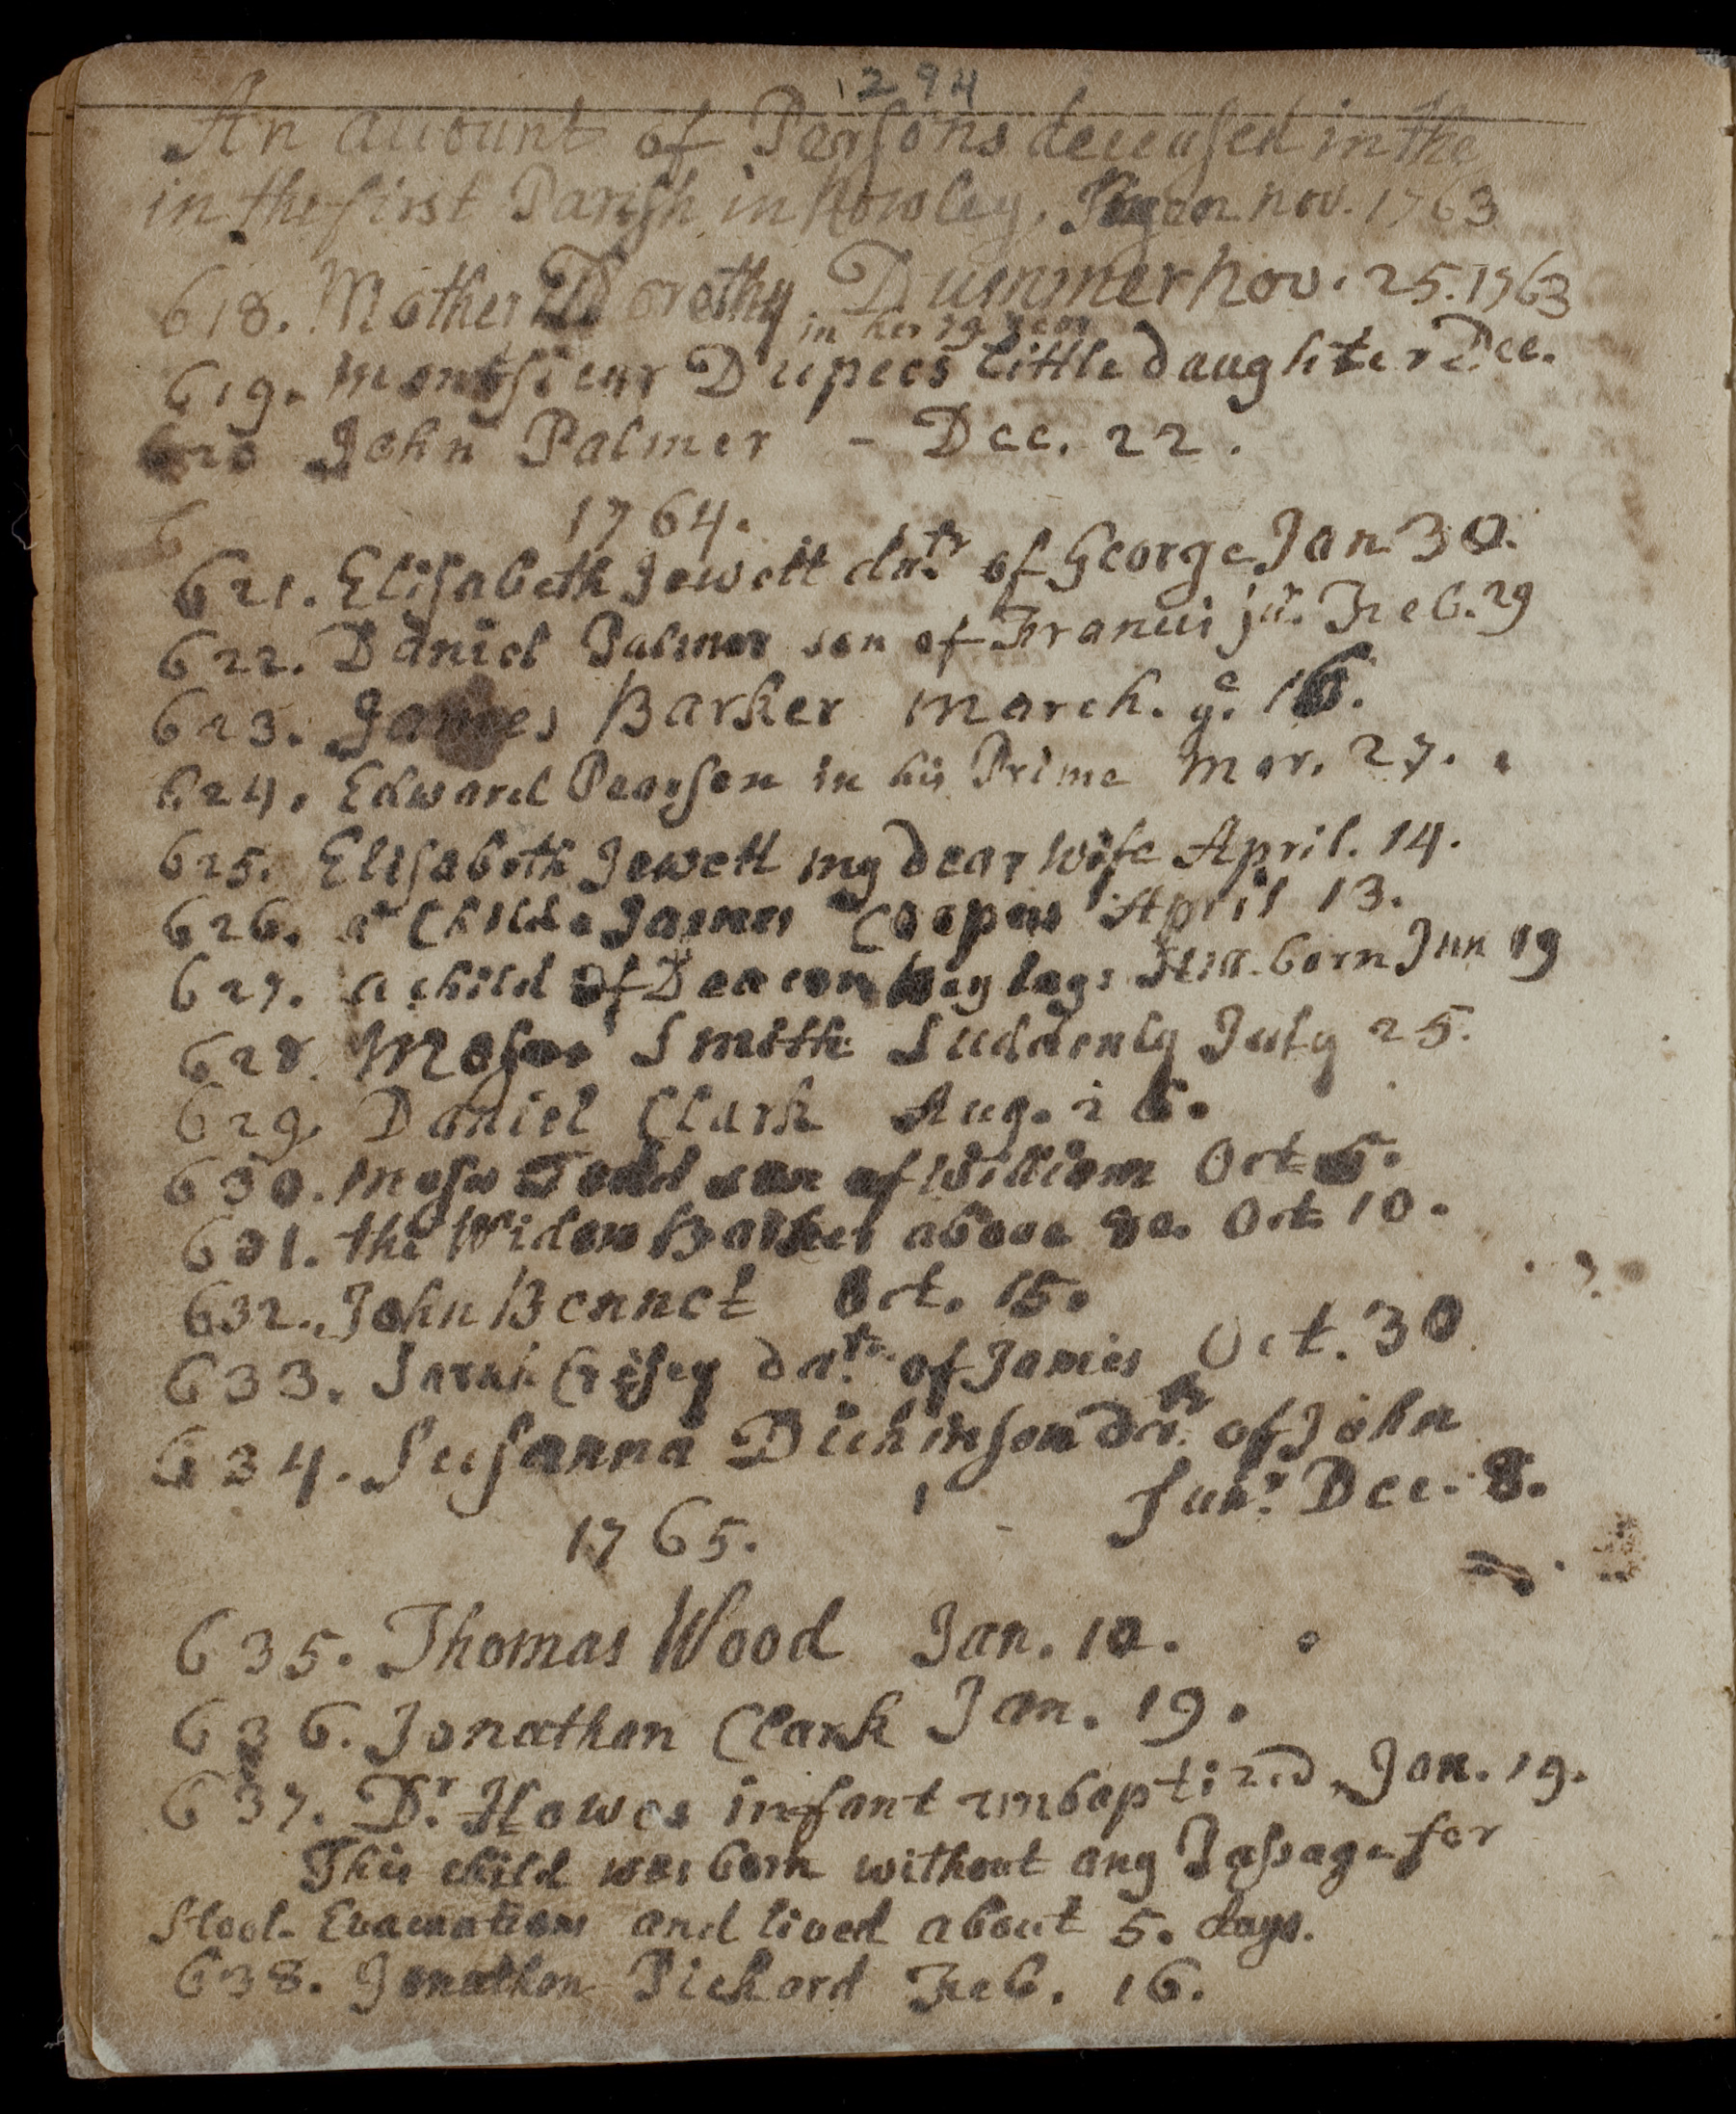 1294
An account of Persons deceased in the
in the first Parish in Rowley. Begun nov. 1763
618. Mother Dorothy Dummer Nov. 25. 1763
in her 79 year
619. montsieur Dupees little daughter Dec.
620 John Palmer - Dec. 22.
6
1764.
621. Elisabeth Jewett datr. of George Jan 30.
622. Daniel Palmer son of Francis jur. Feb. 29
623. James Barker march. ye. 16.
624. Edward Pearson in his Prime Mar. 27.
625. Elisabeth Jewett my dear wife April. 14.
626. a Child. James Coopers April 13.
627. a child of Deacon still-born Jun 19
628. Moses Smith Suddenly July 25.
629. Daniel Clark Aug. 26.
630. moses Todd son of William Oct 6.
631. the Widow Barker above Oct 10.
632. John Bennet Oct. 15.
633. Sarah Cresey datr. of James Oct. 30
634. Susanna Dickinson datr. of John
Junr. Dec. 8.
1765.
635. Thomas Wood Jan. 10.
636. Jonathan Clark Jan. 19.
637. Dr. Howes infant unbaptized Jan. 19.
This child was born without any Passage for
Stool-Evacuations and lived about 5. days.
638. Jonathan Pickard Feb. 16.